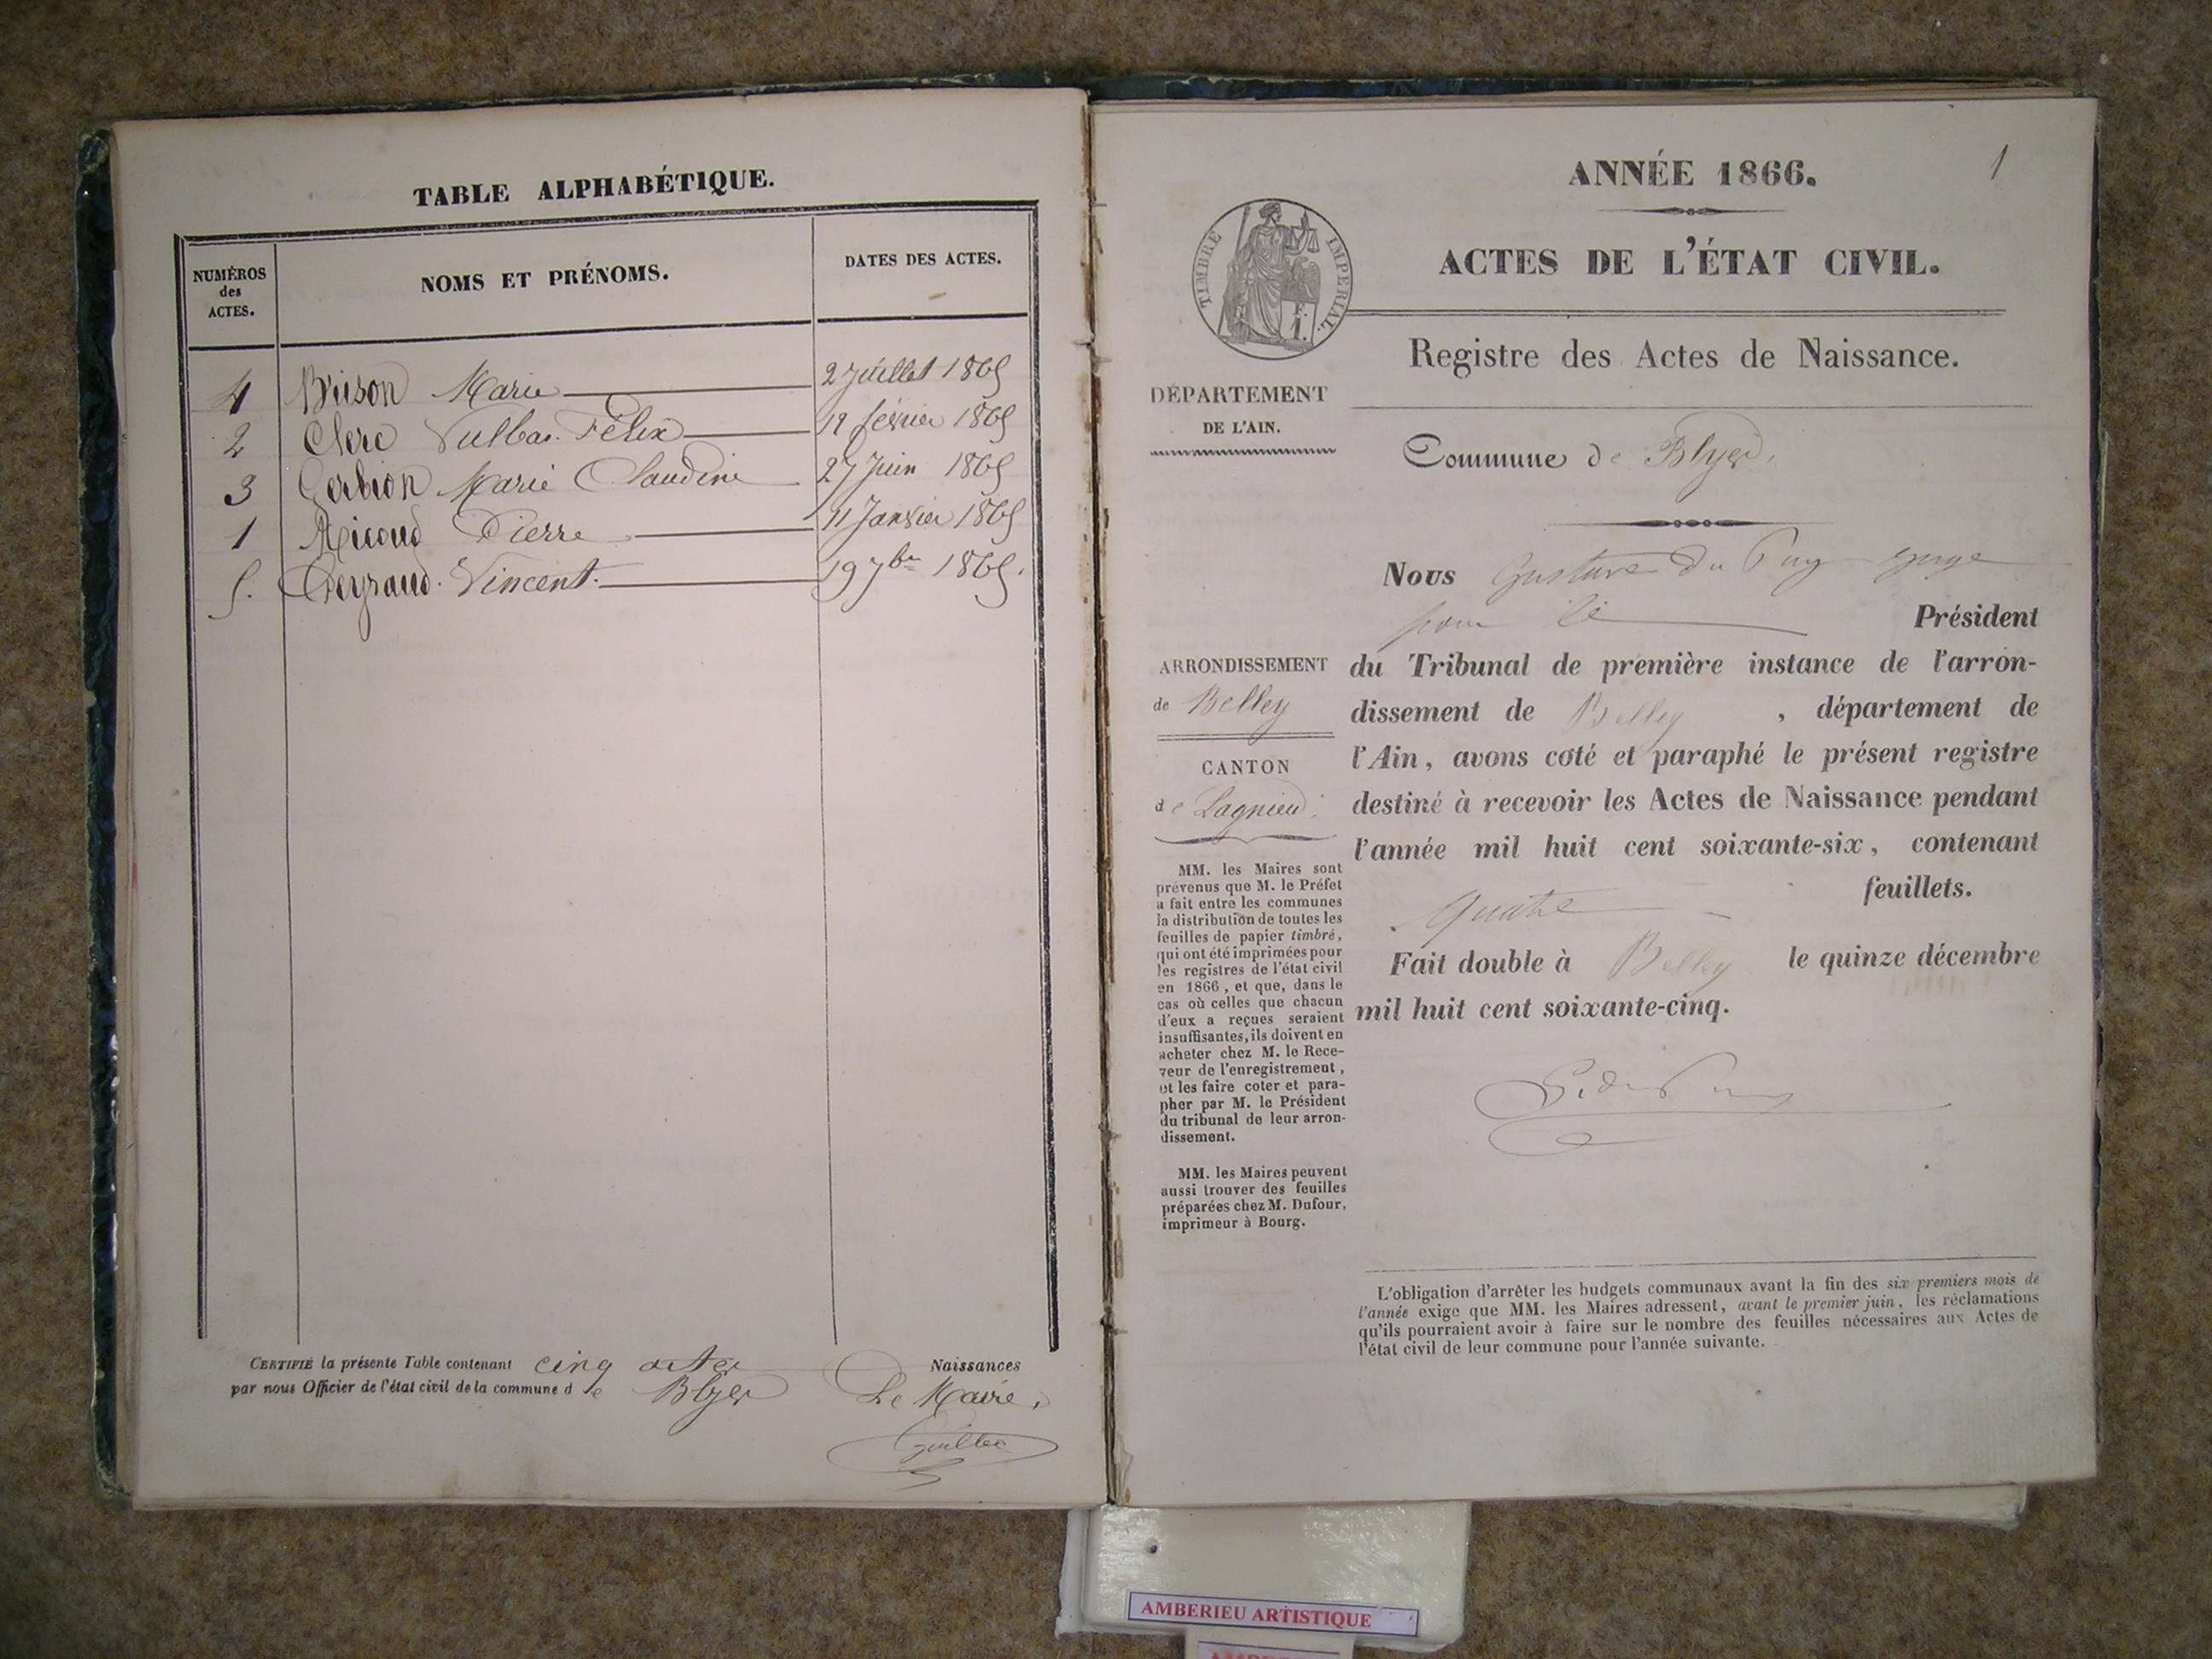 TABLE ALPHABÉTIQUE.
NUMÉROS des ACTES. NOMS ET PRÉNOMS. DATES DES ACTES.
4 Brison Marie 2 Juillet 1865
2 Clerc Vulbas Félix 12 février 1865
3 Gerbion Marie Claudine 27 Juin 1865
1 Micoud Pierre 11 Janvier 1865
5. Peyraud Vincent. 19 7bre 1865.
CERTIFIÉ la présente Table contenant cinq actes Naissances
par nous Officier de l'état civil de la commune de Blyes Le Maire,
1
ANNÉE 1866.
ACTES DE L'ÉTAT CIVIL.
TIMBRE IMPERIAL.
Registre des Actes de Naissance.
DÉPARTEMENT
DE L'AIN.
Commune de Blyes,
Nous Gustave du Puy juge
pour le Président
du Tribunal de première instance de l'arron-
dissement de Belley, département de
l'Ain, avons coté et paraphé le présent registre
destiné à recevoir les Actes de Naissance pendant
l'année mil huit cent soixante-six, contenant
quatre feuillets.
Fait double à Belley le quinze décembre
mil huit cent soixante-cinq.
ARRONDISSEMENT
de Belley
CANTON
de Lagnieu.
MM. les Maires sont
prévenus que M. le Préfet
a fait entre les communes
la distribution de toutes les
feuilles de papier timbré,
qui ont été imprimées pour
les registres de l'état civil
en 1866, et que, dans le
cas où celles que chacun
d'eux a reçues seraient
insuffisantes, ils doivent en
acheter chez M. le Rece-
veur de l'enregistrement,
et les faire coter et para-
pher par M. le Président
du tribunal de leur arron-
dissement.
MM. les Maires peuvent
aussi trouver des feuilles
préparées chez M. Dufour,
imprimeur à Bourg.
L'obligation d'arrêter les budgets communaux avant la fin des six premiers mois de
l'année exige que MM. les Maires adressent, avant le premier juin, les réclamations
qu'ils pourraient avoir à faire sur le nombre des feuilles nécessaires aux Actes de
l'état civil de leur commune pour l'année suivante.
AMBERIEU ARTISTIQUE